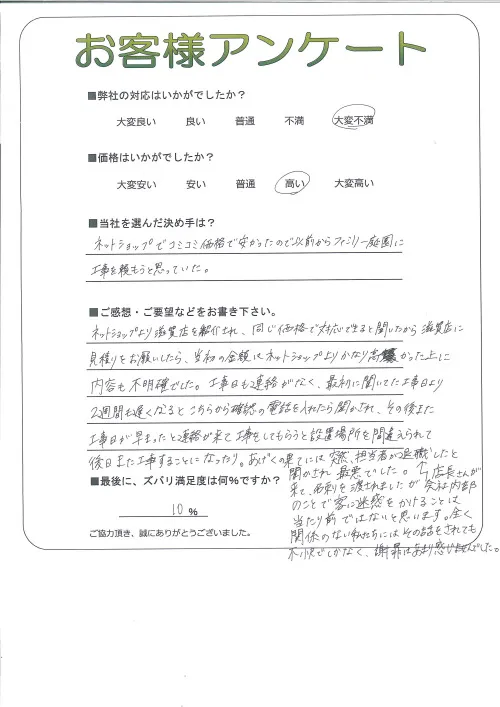 お客様アンケート
■弊社の対応はいかがでしたか？
大変良い 良い 普通 不満 大変不満
■価格はいかがでしたか？
大変安い 安い 普通 高い 大変高い
■当社を選んだ決め手は？
ネットショップでコミコミ価格で安かったので以前からファミリー庭園に
工事を頼もうと思っていた。
■ご感想・ご要望などをお書き下さい。
ネットショップより滋賀店を紹介され、同じ価格で対応できると聞いたから滋賀店に
見積りをお願いしたら、当初の金額はネットショップよりかなり高かった上に
内容も不明確でした。工事日も連絡がなく、最初に聞いてた工事日より
2週間も遅くなるとこちらから確認の電話を入れたら聞かされ、その後また
工事日が早まったと連絡が来て工事をしてもらうと設置場所を間違えられて
後日また工事することになったり。あげくの果てには突然、担当者が退職したと
聞かされ最悪でした。店長さんが
来て、名刺を渡されましたが会社内部
のことで客に迷惑をかけることは
当たり前ではないと思います。全く
関係のない私たちにはその話をされても
不快でしかなく、謝罪はあまり感じませんでした。
■最後に、ズバリ満足度は何%ですか？
10 %
ご協力頂き、誠にありがとうございました。